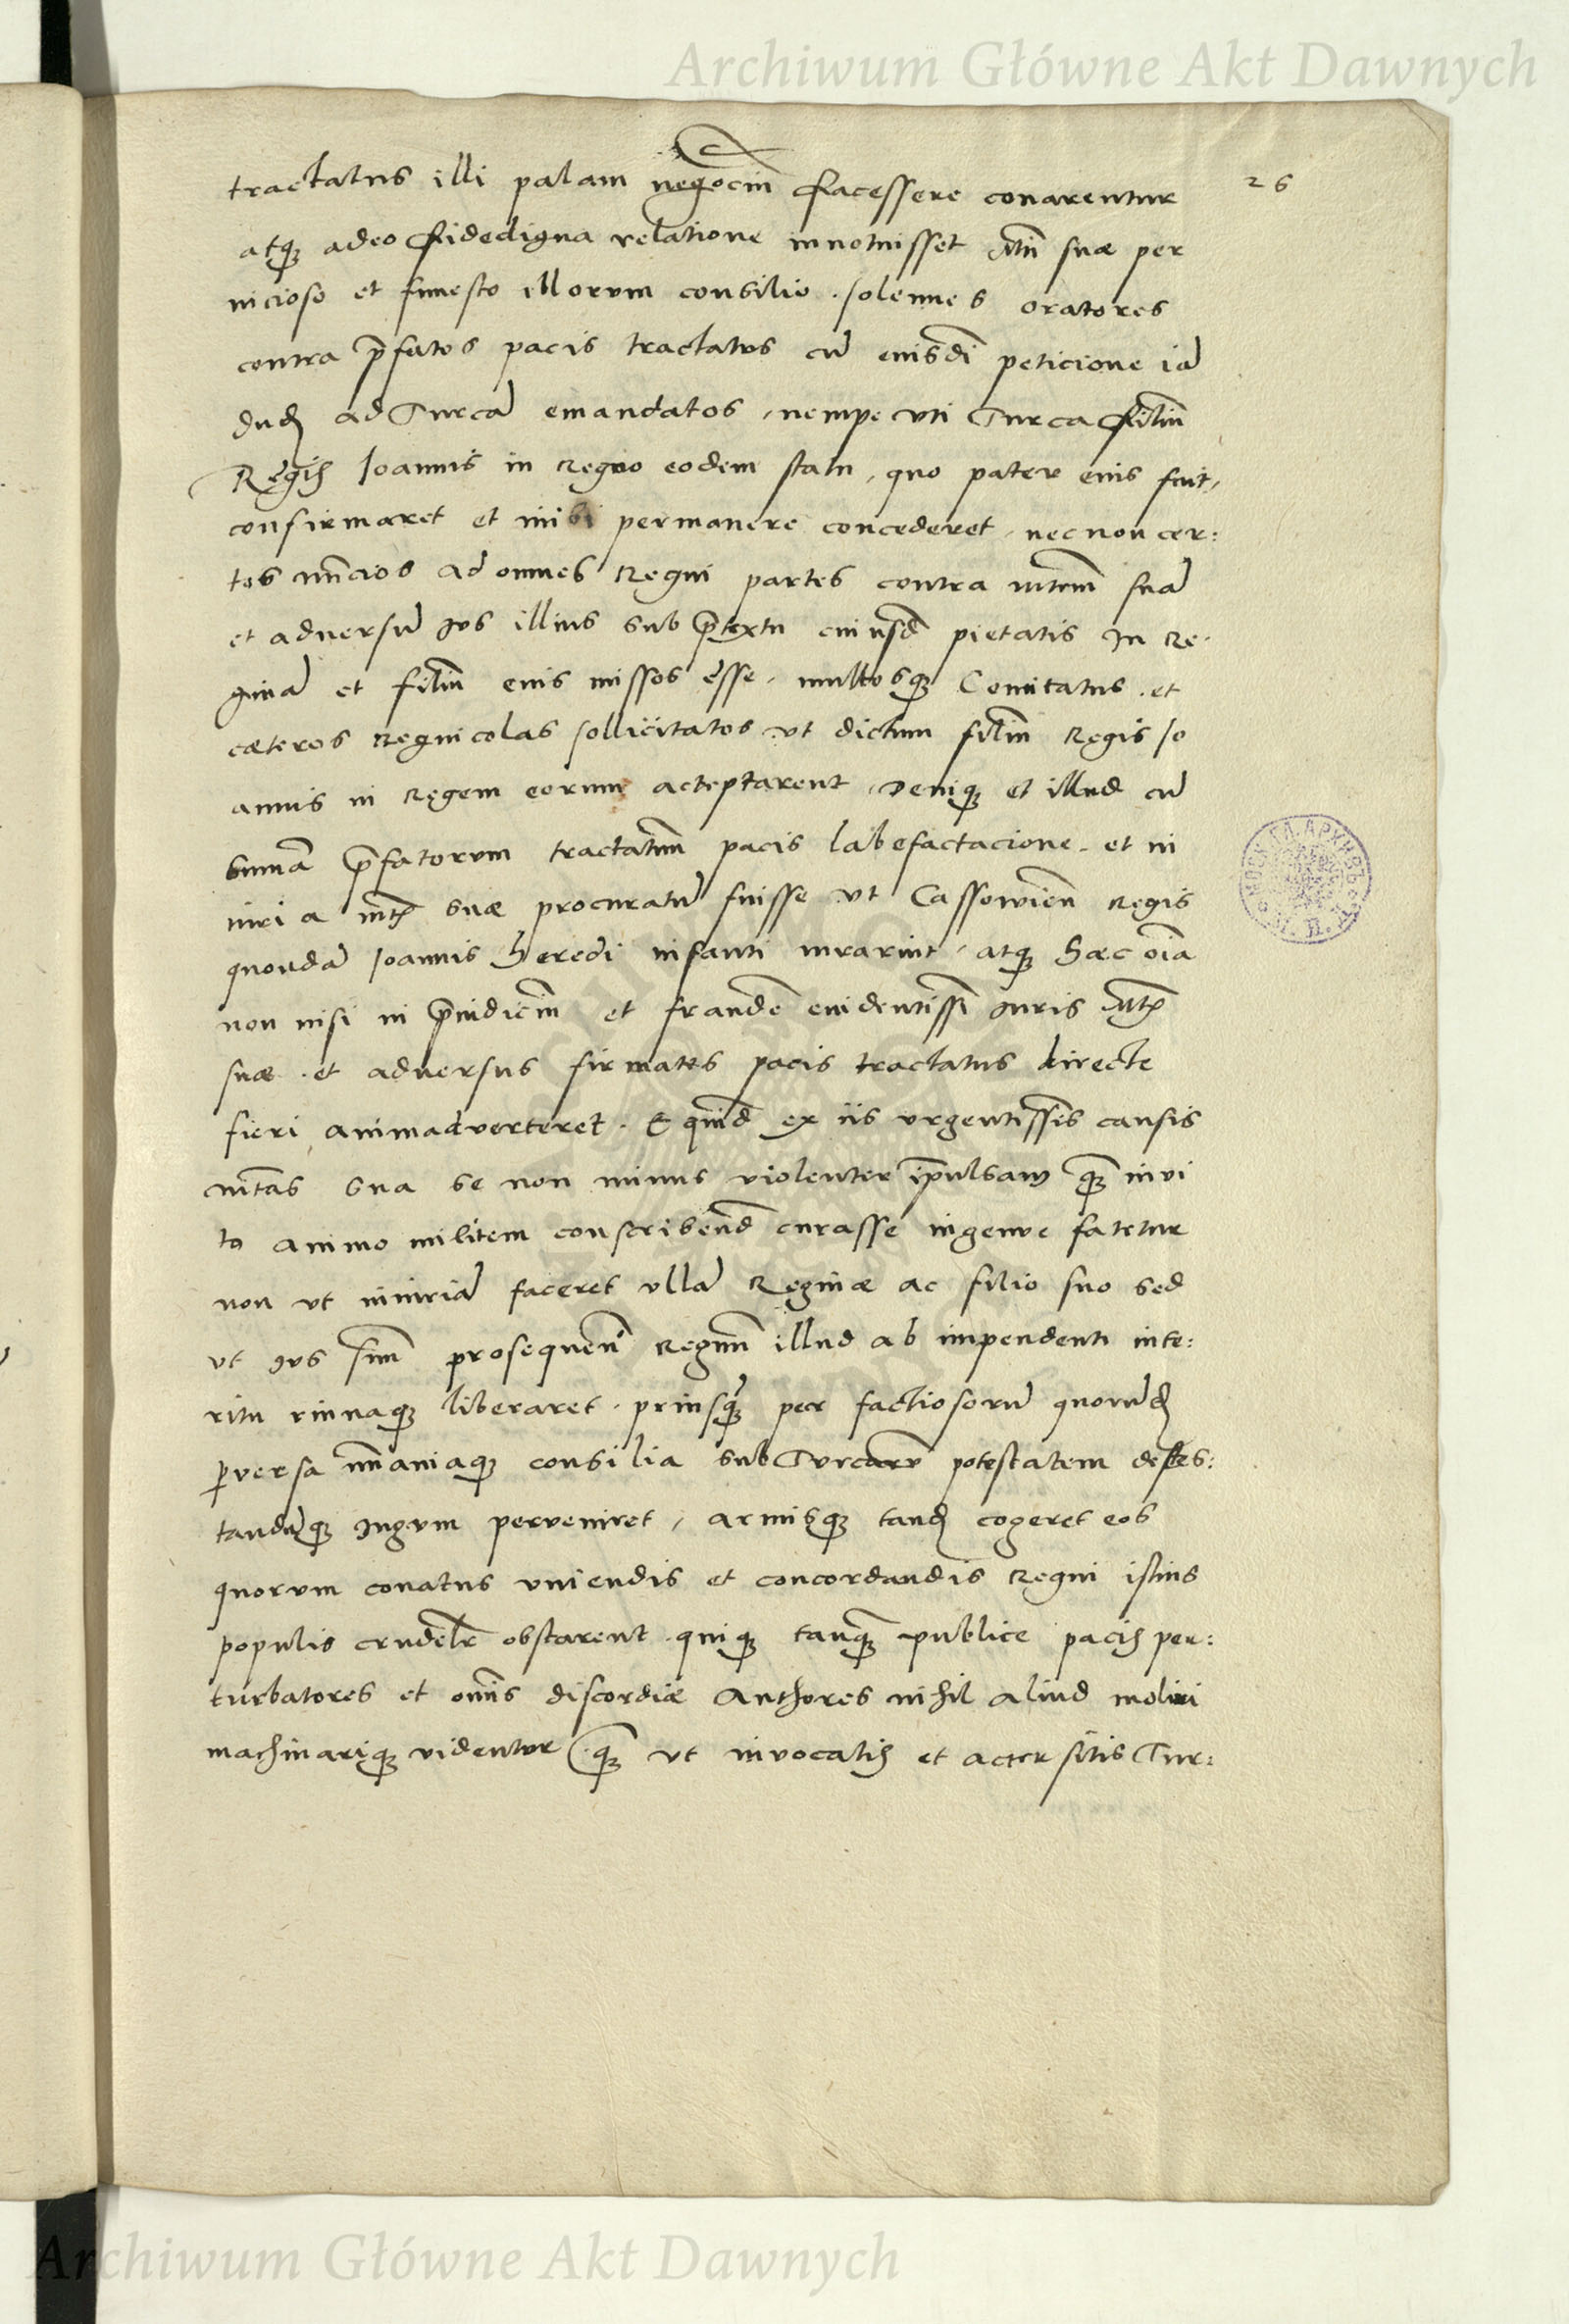 Archiwum Główne Akt Dawnych
26
tractatus illi palam negociũ facessere conarentur
atqꝫ adeo fidedigna relatione innotuisset Mti suæ per
nicioso et funesto illorum consilio. solennes oratores
contra p̃fatos pacis tractatus cũ eiusdẽ peticione iã
dudũ ad Turcã emandatos, nempe vti Turca filiũ
Regis Joannis in regno eodem statu, quo pater eius fuit,
confirmaret et inibi permanere concederet, nec non cer:
tos nũcios ad omnes Regni partes contra Mtem suã
et aduersũ Jus illius sub p̃textu cuiusdã pietatis in Re.
ginã et filiũ eius missos esse, multosqꝫ Comitatus. et
cæteros regnicolas sollicitatos vt dictum filiũ Regis Jo
annis in Regem eorum acceptarent, Deniqꝫ et illud cũ
summã p̃fatorum tractatuum pacis labefactacione. et in
iuria Mtis suæ procuratũ fuisse vt Cassouien̄ Regis
quondã Joannis heredi infanti iurarint, atqꝫ hæc oĩa
non nisi in p̃iudiciũ et fraudẽ euidentissi Juris Mtis
suæ. et aduersus firmatos pacis tractatus directe
fieri animaduerteret. Equidẽ ex iis vrgentissĩs causis
Mtas sua se non minus violenter ĩpulsam qꝫ inui
to animo militem conscribend̃ curasse ingenue fatetur
non vt iniuriã faceret vllã Reginæ ac filio suo sed
vt Jus suũ prosequen̄ Regnũ illud ab impendenti inte:
ritu ruinaqꝫ liberaret. priusqꝫ per factiosorũ quorũdã
ꝑversa insaniaqꝫ consilia sub Turcarũ potestatem detes:
tandũqꝫ Jugum perveniret, armisqꝫ tandẽ cogeret eos
quorum conatus vniendis et concordandis Regni istius
populis crudelr̃ obstarent. quiqꝫ tanqꝫ publice pacis per:
turbatores et om̃is discordiæ Authores nihil aliud moliri
machinariqꝫ videntur qꝫ vt invocatis et accersitis Tur:
Archiwum Główne Akt Dawnych